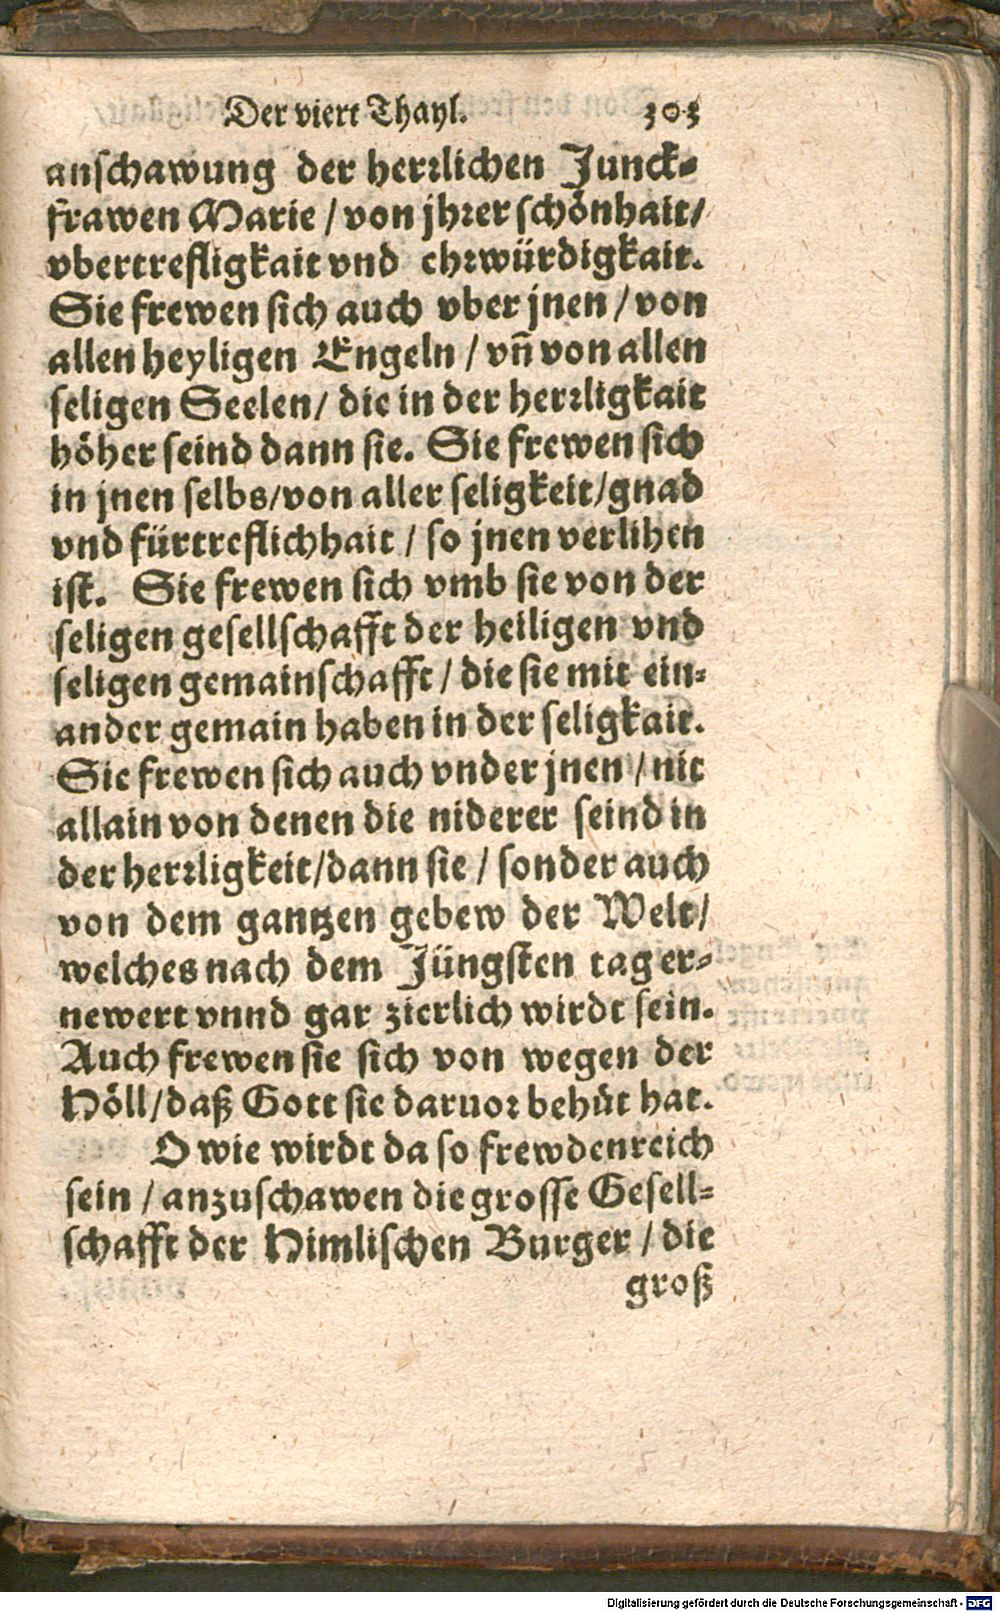 Der viert Thayl. 303
anschawung der herrlichen Junck-
frawen Marie / von jhrer schönhait/
vbertrefligkait vnd ehrwürdigkait.
Sie frewen sich auch vber jnen / von
allen heyligen Engeln / vn̄ von allen
seligen Seelen/ die in der herrligkait
höher seind dann sie. Sie frewen sich
in jnen selbs/von aller seligkeit/gnad
vnd fürtreflichhait / so jnen verlihen
ist. Sie frewen sich vmb sie von der
seligen gesellschafft der heiligen vnd
seligen gemainschafft / die sie mit ein-
ander gemain haben in der seligkait.
Sie frewen sich auch vnder jnen / nit
allain von denen die niderer seind in
der herrligkeit/dann sie / sonder auch
von dem gantzen gebew der Welt/
welches nach dem Jüngsten tag er-
newert vnnd gar zierlich wirdt sein.
Auch frewen sie sich von wegen der
Höll/daß Gott sie daruor behüt hat.
O wie wirdt da so frewdenreich
sein / anzuschawen die grosse Gesell-
schafft der Himlischen Burger / die
groß
Digitalisierung gefördert durch die Deutsche Forschungsgemeinschaft - DFG